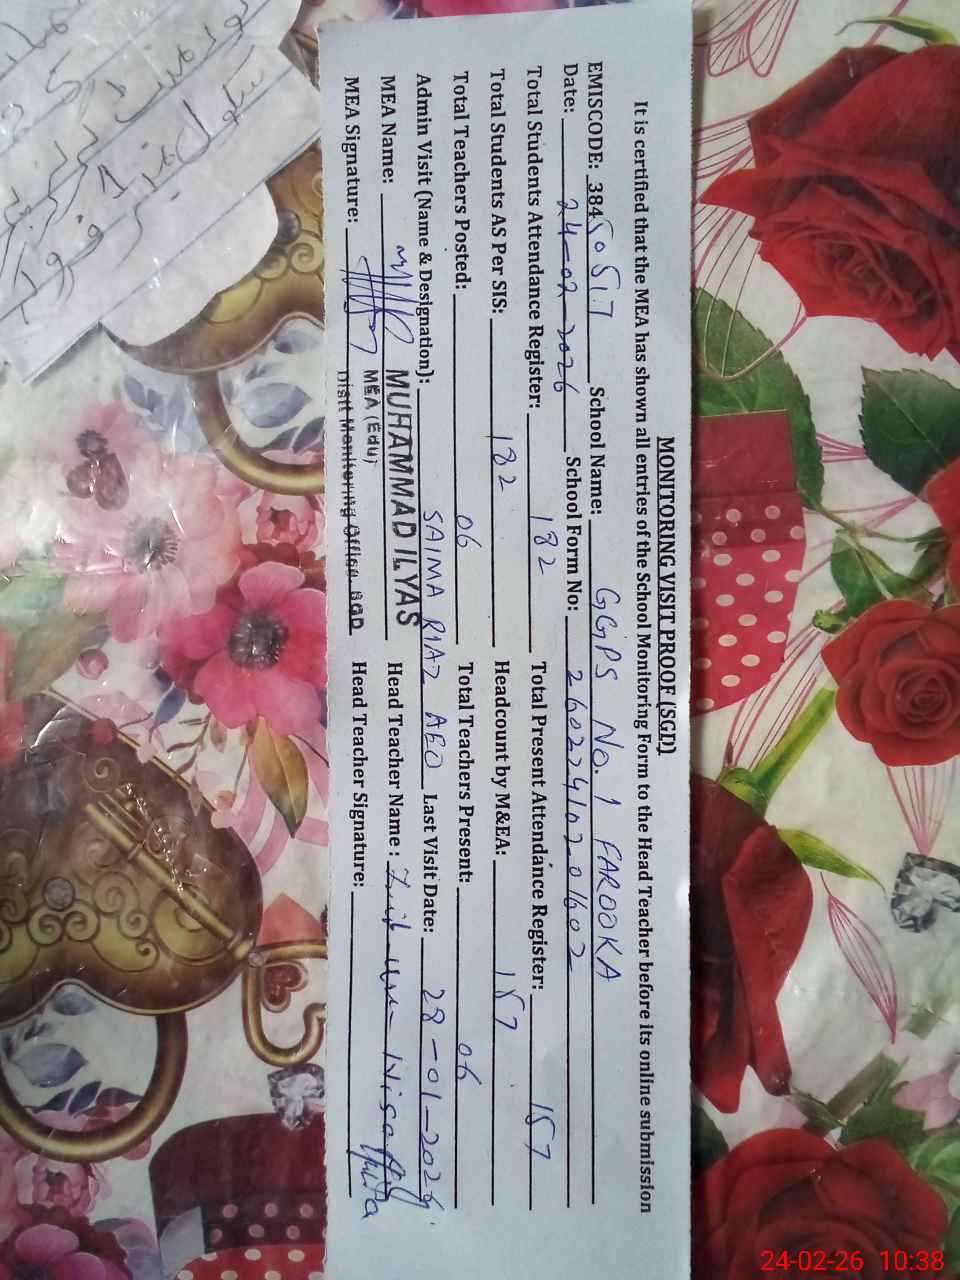 MONITORING VISIT PROOF (SGD)
It is certified that the MEA has shown all entries of the School Monitoring Form to the Head Teacher before its online submission
EMISCODE: 38450517 School Name: GGPS No. 1 FAROOKA
Date: 24-02-2026 School Form No: 26022410201602
Total Students Attendance Register: 182 Total Present Attendance Register: 157
Total Students AS Per SIS: 182 Headcount by M&EA: 157
Total Teachers Posted: 06 Total Teachers Present: 06
Admin Visit (Name & Designation): SAIMA RIAZ AEO Last Visit Date: 28-01-2026
MEA Name: MUHAMMAD ILYAS Head Teacher Name: Zaib-un-Nisa
MEA (Edu)
MEA Signature: Distt Monitoring Office SGD Head Teacher Signature:
24-02-26 10:38